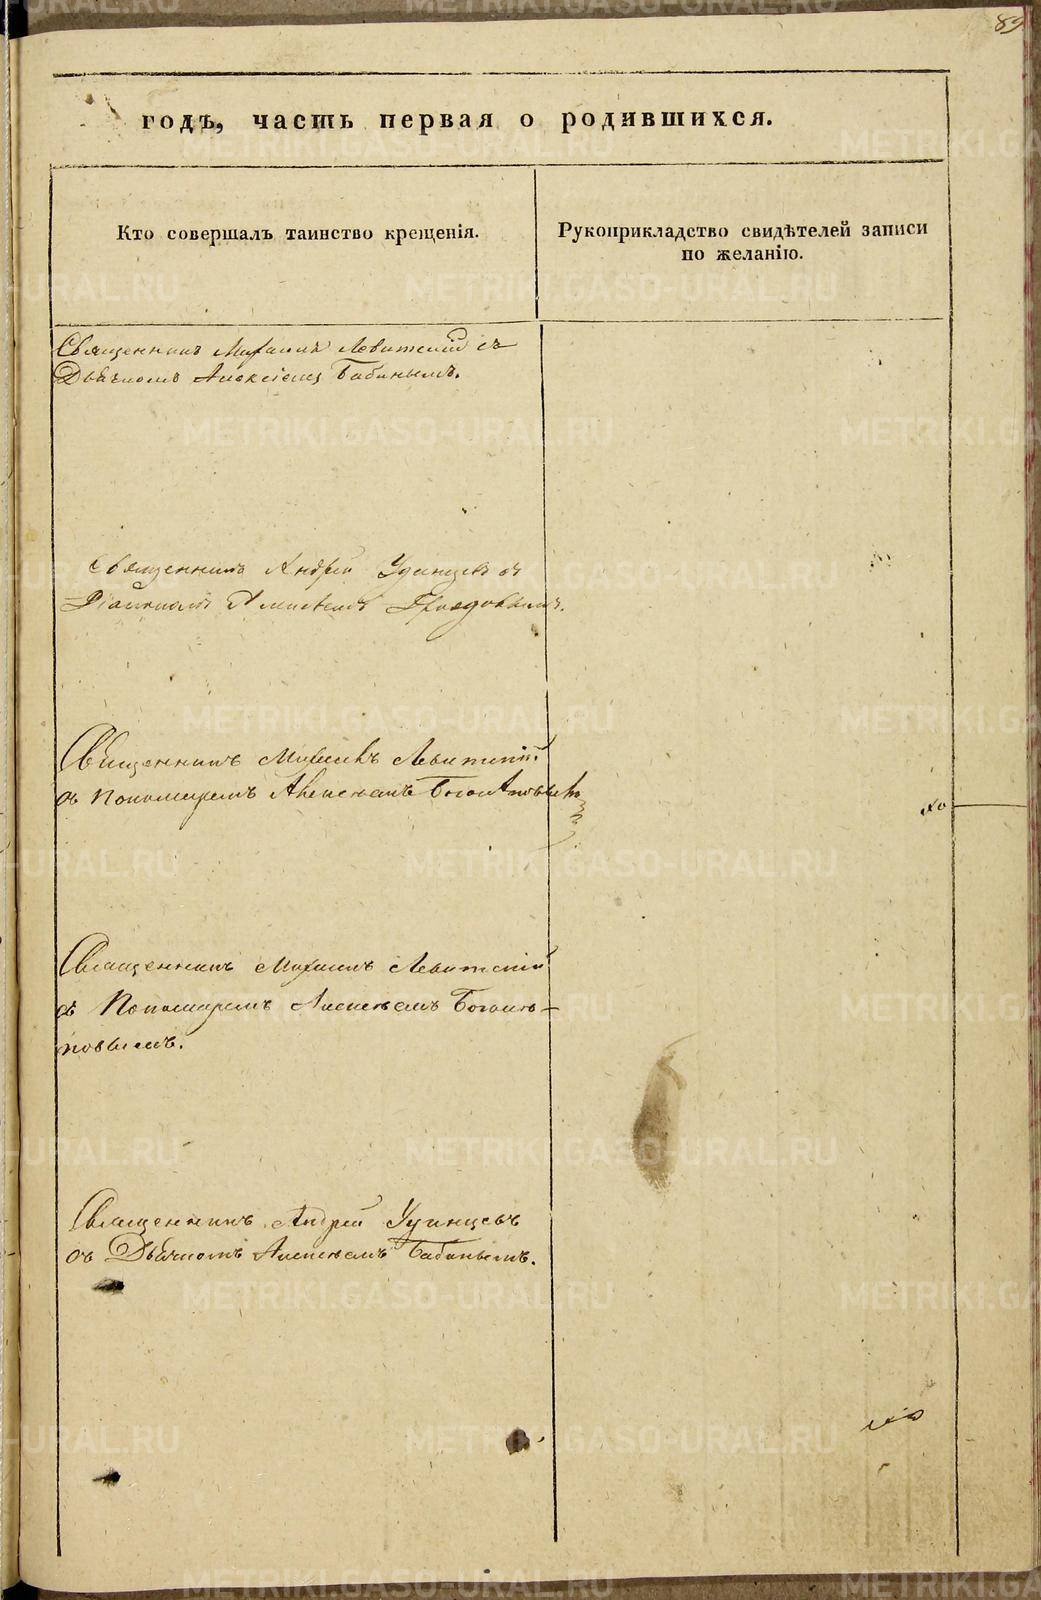 89
годъ, часть первая о родившихся.
Кто совершалъ таинство крещенія.
Рукоприкладство свидѣтелей записи
по желанію.
Священникъ Михаилъ Левитскій съ
Дьячкомъ Алексѣемъ Бабинымъ.
Священникъ Андрей Удинцевъ съ
Діакономъ Алексѣемъ
Священникъ Михаилъ Левитскій
съ Пономаремъ Алексѣемъ Боголѣповымъ
Священникъ Михаилъ Левитскій
съ Пономаремъ Алексѣемъ Боголѣ-
повымъ.
Священникъ Андрей Удинцевъ
съ Дьячкомъ Алексѣемъ Бабинымъ.
METRIKI.GASO-URAL.RU